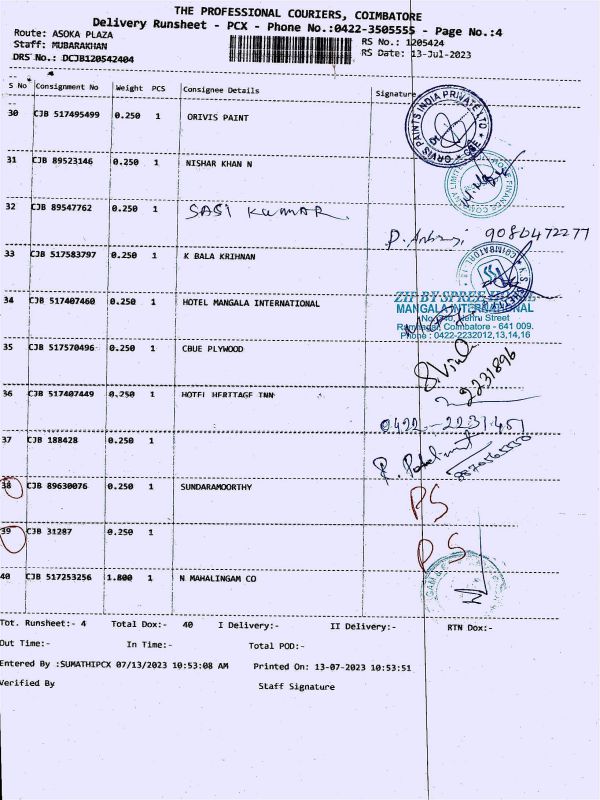 THE PROFESSIONAL COURIERS, COIMBATORE
Delivery Runsheet - PCX - Phone No.:0422-3505555 - Page No.:4
Route: ASOKA PLAZA
RS No.: 1205424
Staff: MUBARAKHAN
RS Date: 13-Jul-2023
DRS No.: DCJB120542404
S No Consignment No Weight PCS Consignee Details Signature
30 CJB 517495499 0.250 1 ORIVIS PAINT
ORVIS PAINTS INDIA PRIVATE LTD CBE
31 CJB 89523146 0.250 1 NISHAR KHAN N
32 CJB 89547762 0.250 1 SASI KUMAR
9086472277
33 CJB 517583797 0.250 1 K BALA KRIHNAN
34 CJB 517407460 0.250 1 HOTEL MANGALA INTERNATIONAL
MANGALA INTERNATIONAL
Nehru Street
Ramnagar, Coimbatore - 641 009.
Phone : 0422-2232012,13,14,16
35 CJB 517570496 0.250 1 CBUE PLYWOOD
2231896
36 CJB 517407449 0.250 1 HOTEL HERITAGE INN
0422-2231451
37 CJB 188428 0.250 1
38 CJB 89630076 0.250 1 SUNDARAMOORTHY
PS
39 CJB 31287 0.250 1
PS
40 CJB 517253256 1.800 1 N MAHALINGAM CO
Tot. Runsheet:- 4 Total Dox:- 40 I Delivery:- II Delivery:- RTN Dox:-
Out Time:- In Time:- Total POD:-
Entered By :SUMATHIPCX 07/13/2023 10:53:08 AM Printed On: 13-07-2023 10:53:51
Verified By Staff Signature